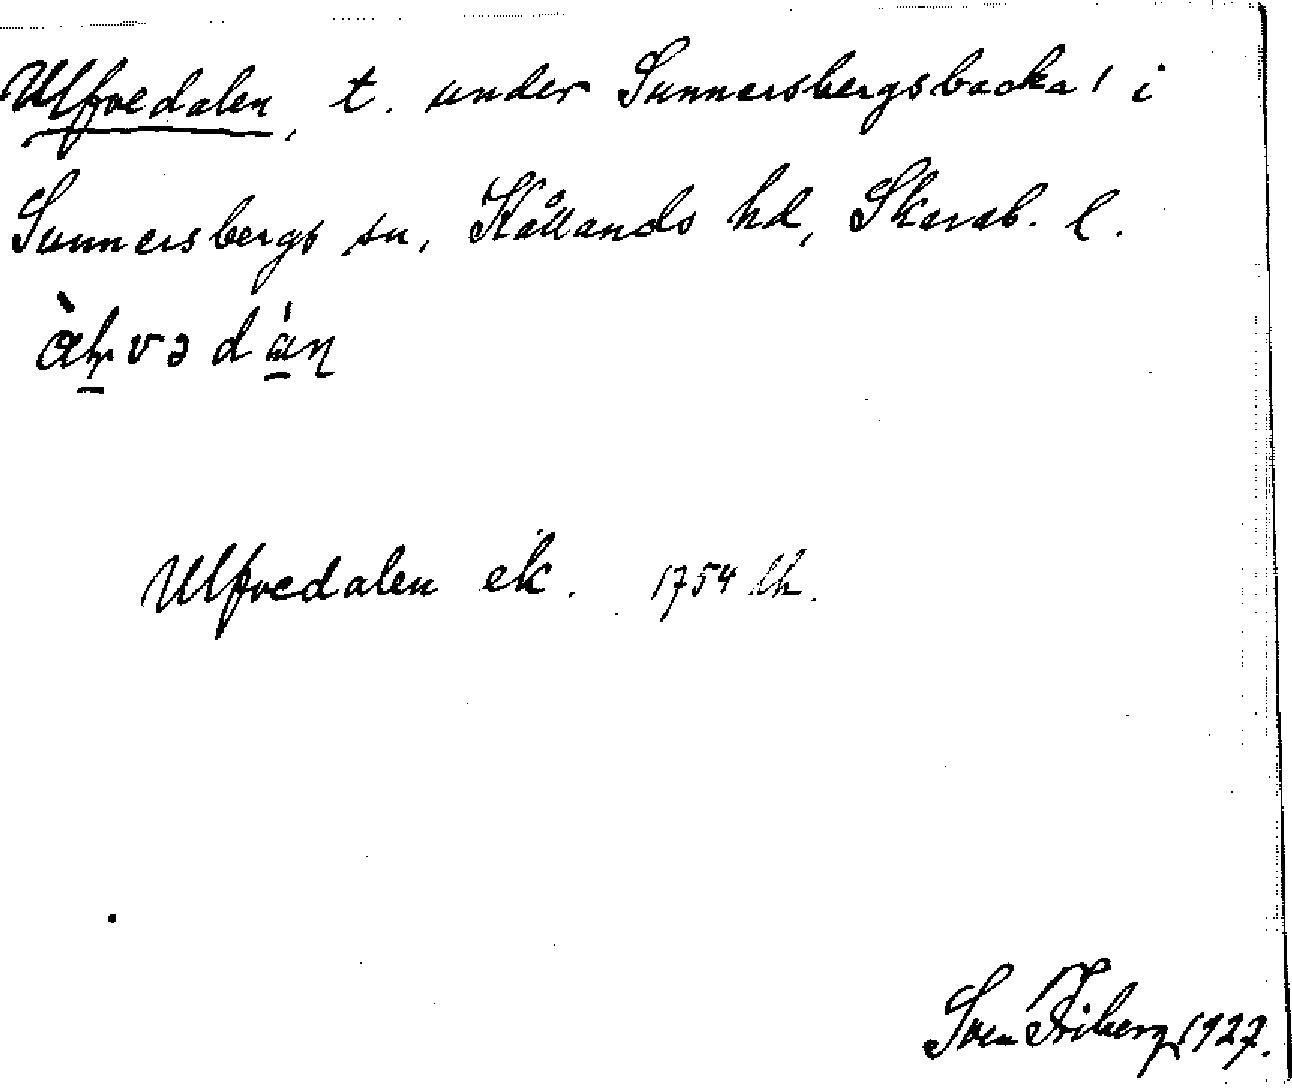 Ulfvedalen, t. under Sunnersbergsbacka 1 i
Sunnersbergs sn, Kållands hd, Skarab. l.
Ulfvedalen ek. 1754 lh.
Sven Friberg 1927.